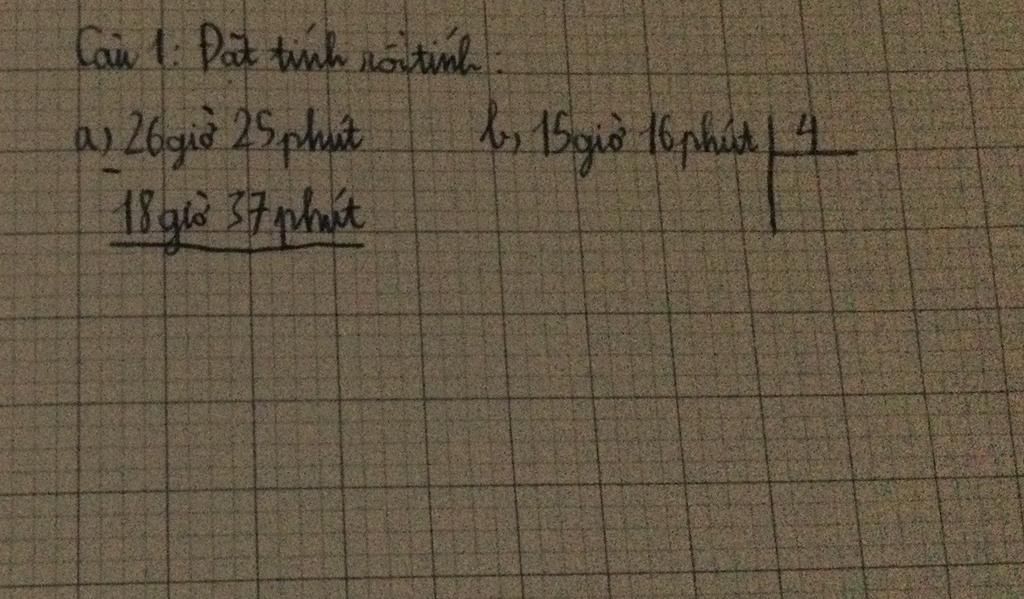 Câu 1: Đặt tính rồi tính:
a) 26 giờ 25 phút b) 15 giờ 16 phút | 4
-
18 giờ 37 phút